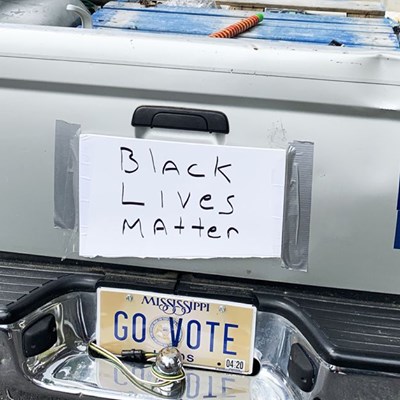 Black
Lives
Matter
MISSISSIPPI
GO VOTE
04·20